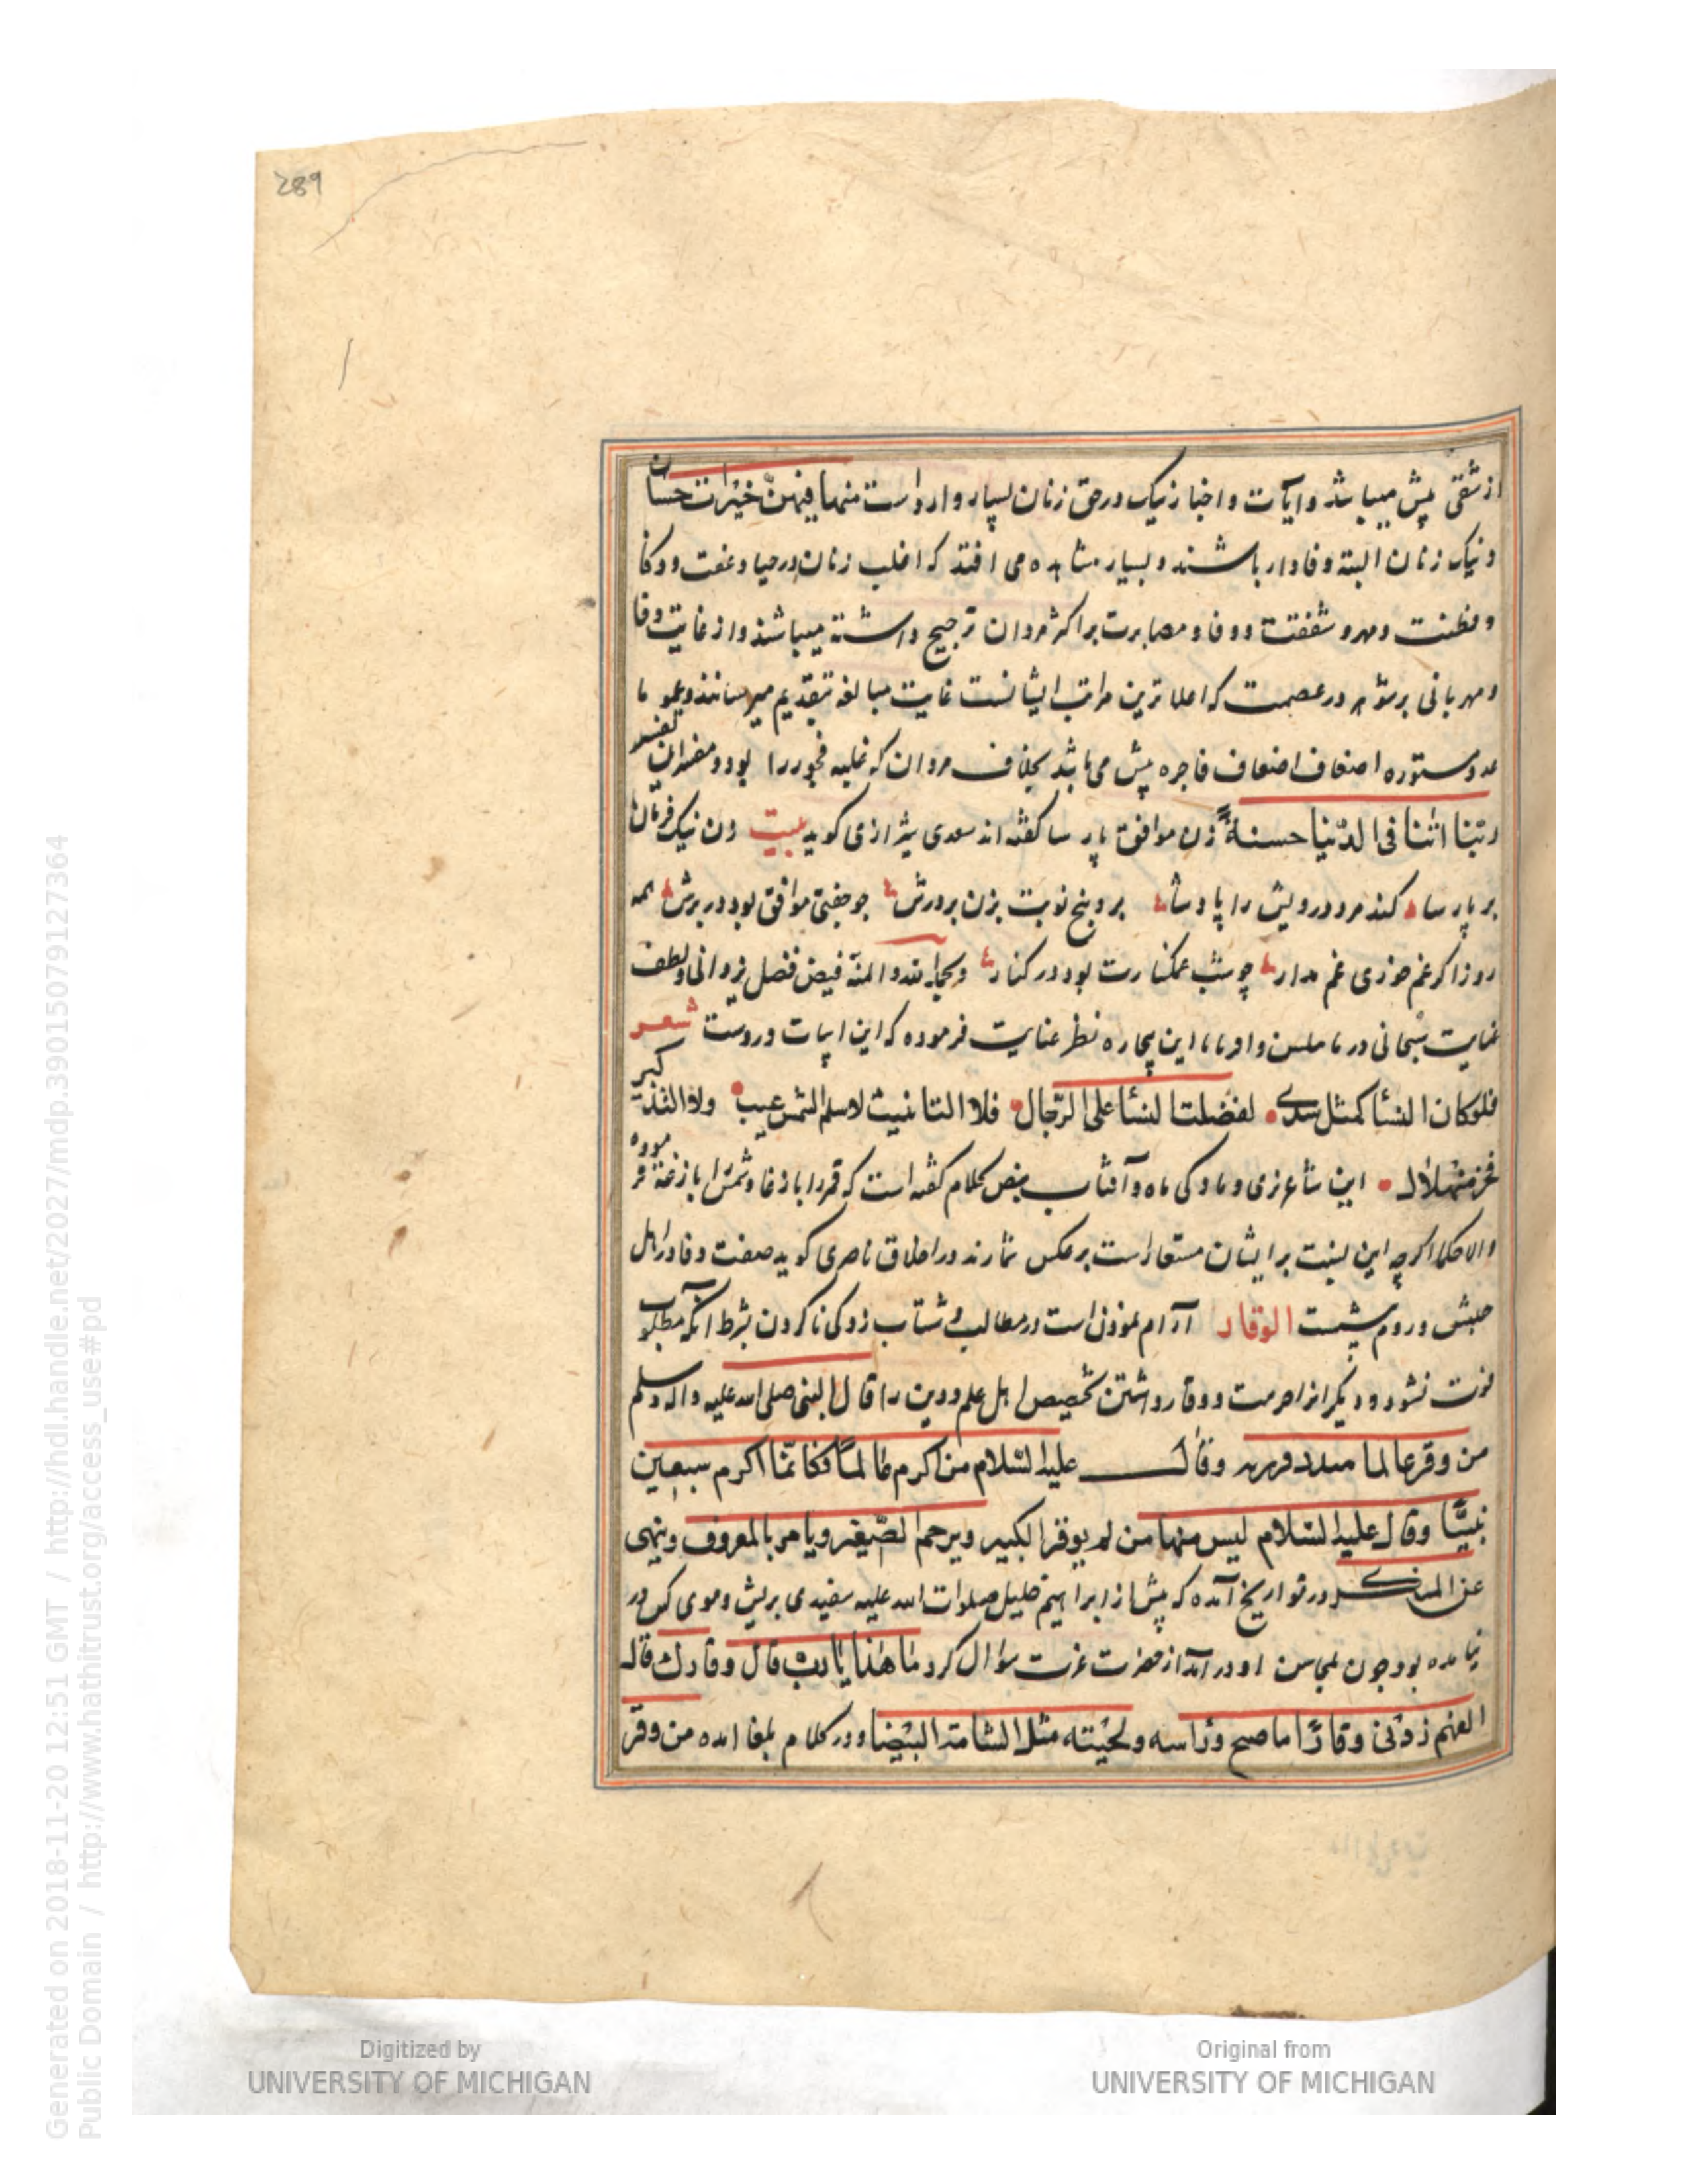 289
از شقی بیش میباشد و آیات و اخبار نیک در حق زنان بسیار وارد است منها فیهن خیرات حسان
و نیک زنان البته وفادار باشند و بسیار مشاهده می افتد که اغلب زنان در حیا و عفت و ذکا
و فطنت و مهر و شفقت و وفا و مصابرت بر اکثر مردان ترجیح داشته میباشند و از غایت وفا
و مهربانی بر شوهر در عصمت که اعلا ترین مراتب ایشانست غایت مبالغه تبقدیم میرسانند و عمو ما
مستوره اضعاف اضعاف فاجره بیش می باشد بخلاف مردان که غلبه فجور را بود و مفسران تفسیر
ربنا اتنا فی الدنیا حسنة زن موافق پارسا گفته اند سعدی شیرازی گوید بیت زن نیک فرمان
بر پارسا کند مرد درویش را پادشا برو پنج نوبت بزن بر درش چو جفتی موافق بود در برش همه
روز اگر غم خوری غم مدار چو شب غمگسارت بود در کنار و بحمدالله و المنة فیض فضل یزدانی و لطف
عنایت سبحانی در این بیچاره نظر عنایت فرموده که این ابیات دروست شعر
فلو کان النسا کمثل هذی لفضلت النسا علی الرجال فلا التانیث لاسم الشمس عیب ولا التذکیر
فخر للهلال این شاعر نری و مادگی ماه و آفتاب بنص کلام گفته است که قمر را بازغا و شمس را بازغة فرموده
و الا حکما اگرچه این نسبت بر ایشان مستعار است برعکس شمارند در اخلاق ناصری گوید صفت وفا در اهل
حبش و روم بیشست الوقار آرام نمودن است در مطالب و شتاب زدگی ناکردن بشرط آنکه مطلوب
فوت نشود و دیگرانرا حرمت و وقار داشتن تخصیص اهل علم و دین را قال النبی صلی الله علیه واله وسلم
من وقر عالما فقد وقر ربه وقال علیه السلام من اکرم عالماً فکانما اکرم سبعین
نبیّا وقال علیه السلام لیس منها من لم یوقر الکبیر ویرحم الصغیر ویامر بالمعروف وینهی
عن المنکر در تواریخ آمده که پیش از ابراهیم خلیل صلوات الله علیه سفیدی بریش و موی کس در
نیامده بود چون بمحاسن او در آمد از حضرت عزت سؤال کرد ما هذا یا رب قال وقارک قال
اللهم زدنی وقارًا فاصبح وراسه ولحیته مثل الثغامة البیضا و در کلام بلغا امده من وقر
Digitized by
UNIVERSITY OF MICHIGAN
Original from
UNIVERSITY OF MICHIGAN
Generated on 2018-11-20 12:51 GMT / http://hdl.handle.net/2027/mdp.39015079127364
Public Domain / http://www.hathitrust.org/access_use#pd